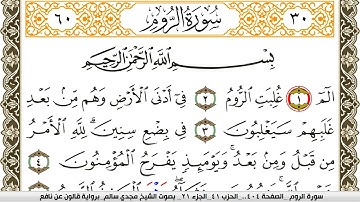 ٦٠ سُورَةُ الرُّومِ ٣٠
بِسْمِ اللَّهِ الرَّحْمَٰنِ الرَّحِيمِ
الٓمٓ ١ غُلِبَتِ الرُّومُ ٢ فِي أَدْنَى الْأَرْضِ وَهُم مِّنۢ بَعْدِ
غَلَبِهِمْ سَيَغْلِبُونَ ٣ فِي بِضْعِ سِنِينَ ۗ لِلَّهِ الْأَمْرُ
مِن قَبْلُ وَمِنۢ بَعْدُ ۚ وَيَوْمَئِذٍ يَفْرَحُ الْمُؤْمِنُونَ ٤
سورة الروم الصفحة ٤٠٤ .. الحزب ٤١ الجزء ٢١ .. بصوت الشيخ مجدي سالم برواية قالون عن نافع